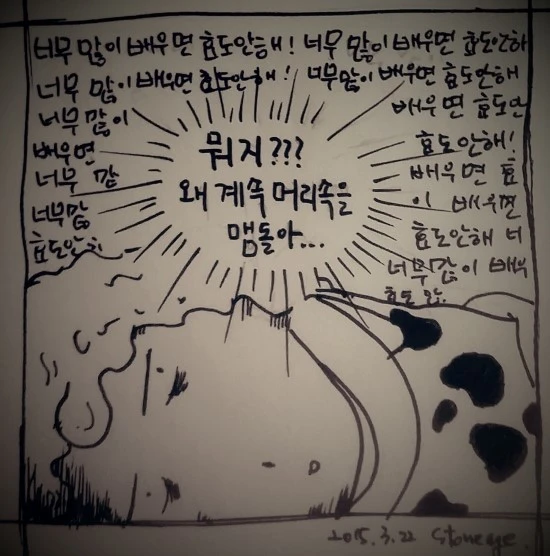 너무 많이 배우면 효도안해! 너무 많이 배우면 효도안하
너무 많이 배우면 효도안해! 너무많이 배우면 효도안해
너무많이
배우면
너무 많
너무많
효도안
배우면 효도안
효도안해!
배우면 효
이 배우면
효도안해 너
너무많이 배우
효도 안
뭐지???
왜 계속 머리속을
맴돌아...
2015.3.22 Stoneage.